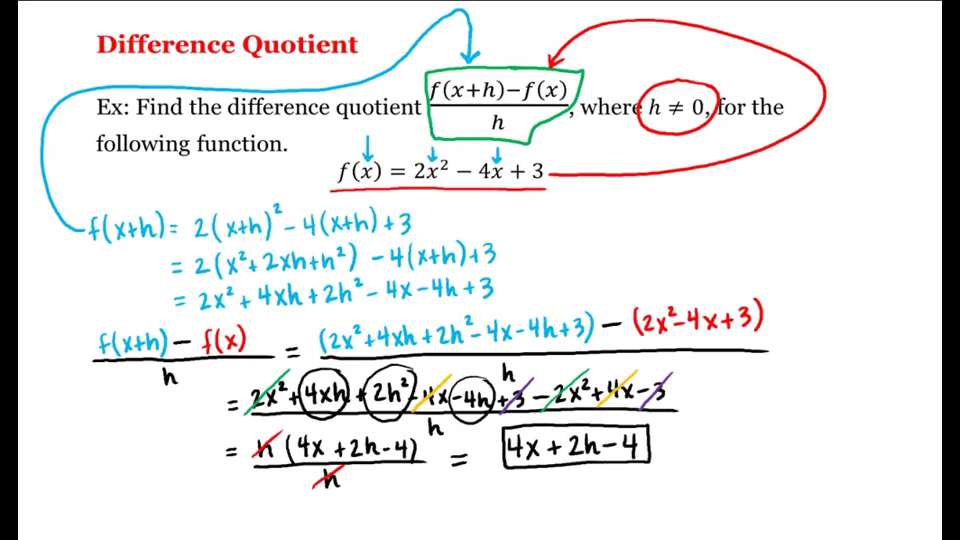 Difference Quotient
Ex: Find the difference quotient (f(x+h)−f(x))/h, where h ≠ 0, for the
following function.
f(x) = 2x² − 4x + 3
f(x+h) = 2(x+h)² - 4(x+h) + 3
= 2(x² + 2xh + h²) - 4(x+h) + 3
= 2x² + 4xh + 2h² - 4x - 4h + 3
(f(x+h) − f(x))/h = ((2x² + 4xh + 2h² - 4x - 4h + 3) − (2x² - 4x + 3))/h
= (2x² + 4xh + 2h² - 4x - 4h + 3 − 2x² + 4x − 3)/h
= h(4x + 2h - 4)/h = 4x + 2h − 4